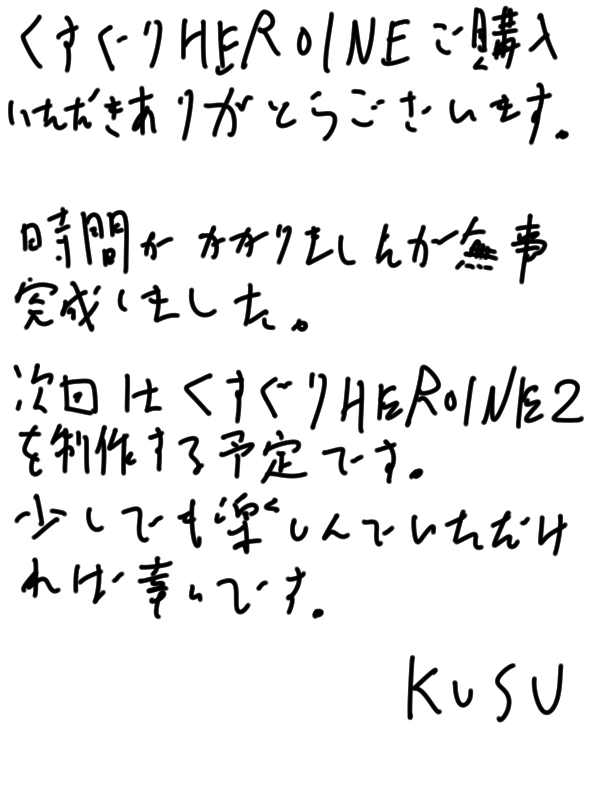 くすぐりHEROINEご購入
いただきありがとうございます。
時間がかかりましたが無事
完成しました。
次回はくすぐりHEROINE2
を制作する予定です。
少しでも楽しんでいただけ
れば幸いです。
KUSU